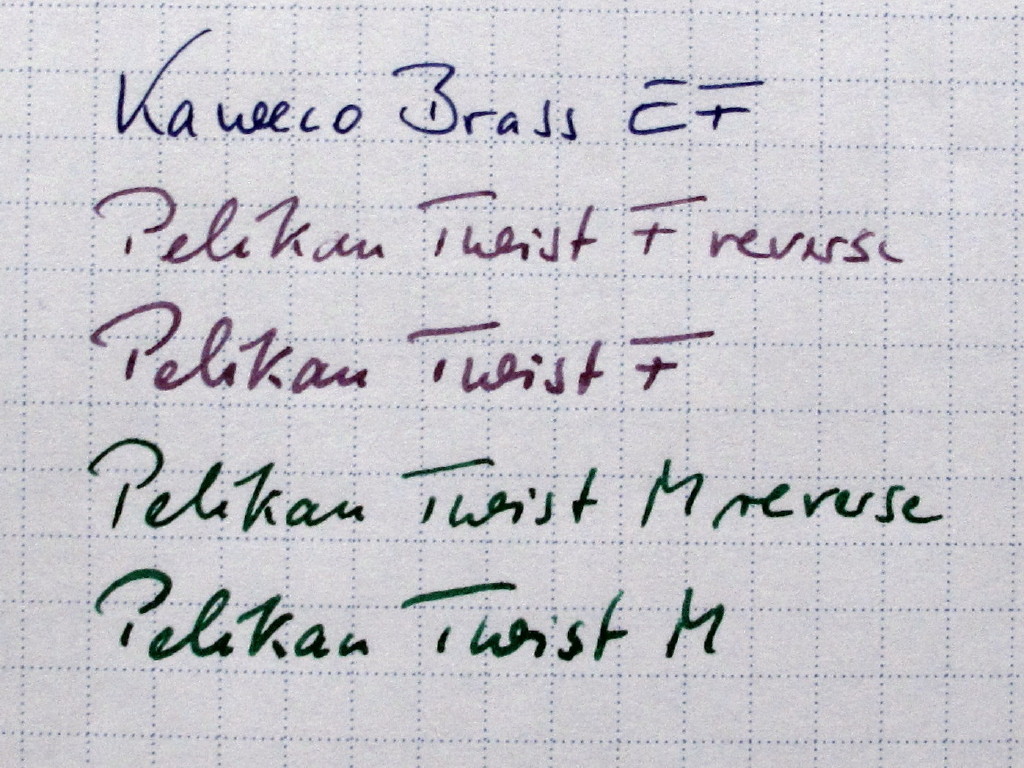 Kaweco Brass EF
Pelikan Twist F reverse
Pelikan Twist F
Pelikan Twist M reverse
Pelikan Twist M